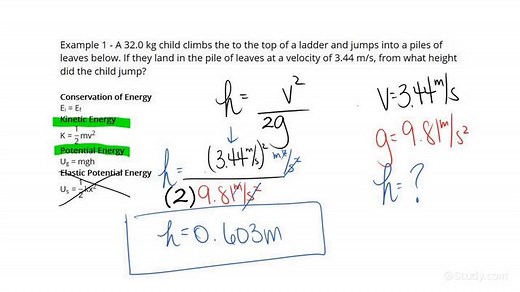 Example 1 - A 32.0 kg child climbs the to the top of a ladder and jumps into a piles of
leaves below. If they land in the pile of leaves at a velocity of 3.44 m/s, from what height
did the child jump?
Conservation of Energy
Eᵢ = E_f
Kinetic Energy
K = 1/2 mv²
Potential Energy
U_g = mgh
Elastic Potential Energy
U_s = 1/2 kx²
h = v²/2g
↓
h = (3.44 m/s)² m²/s²
(2) 9.81 m/s²
h = 0.603m
v = 3.44 m/s
g = 9.81 m/s²
h = ?
Study.com